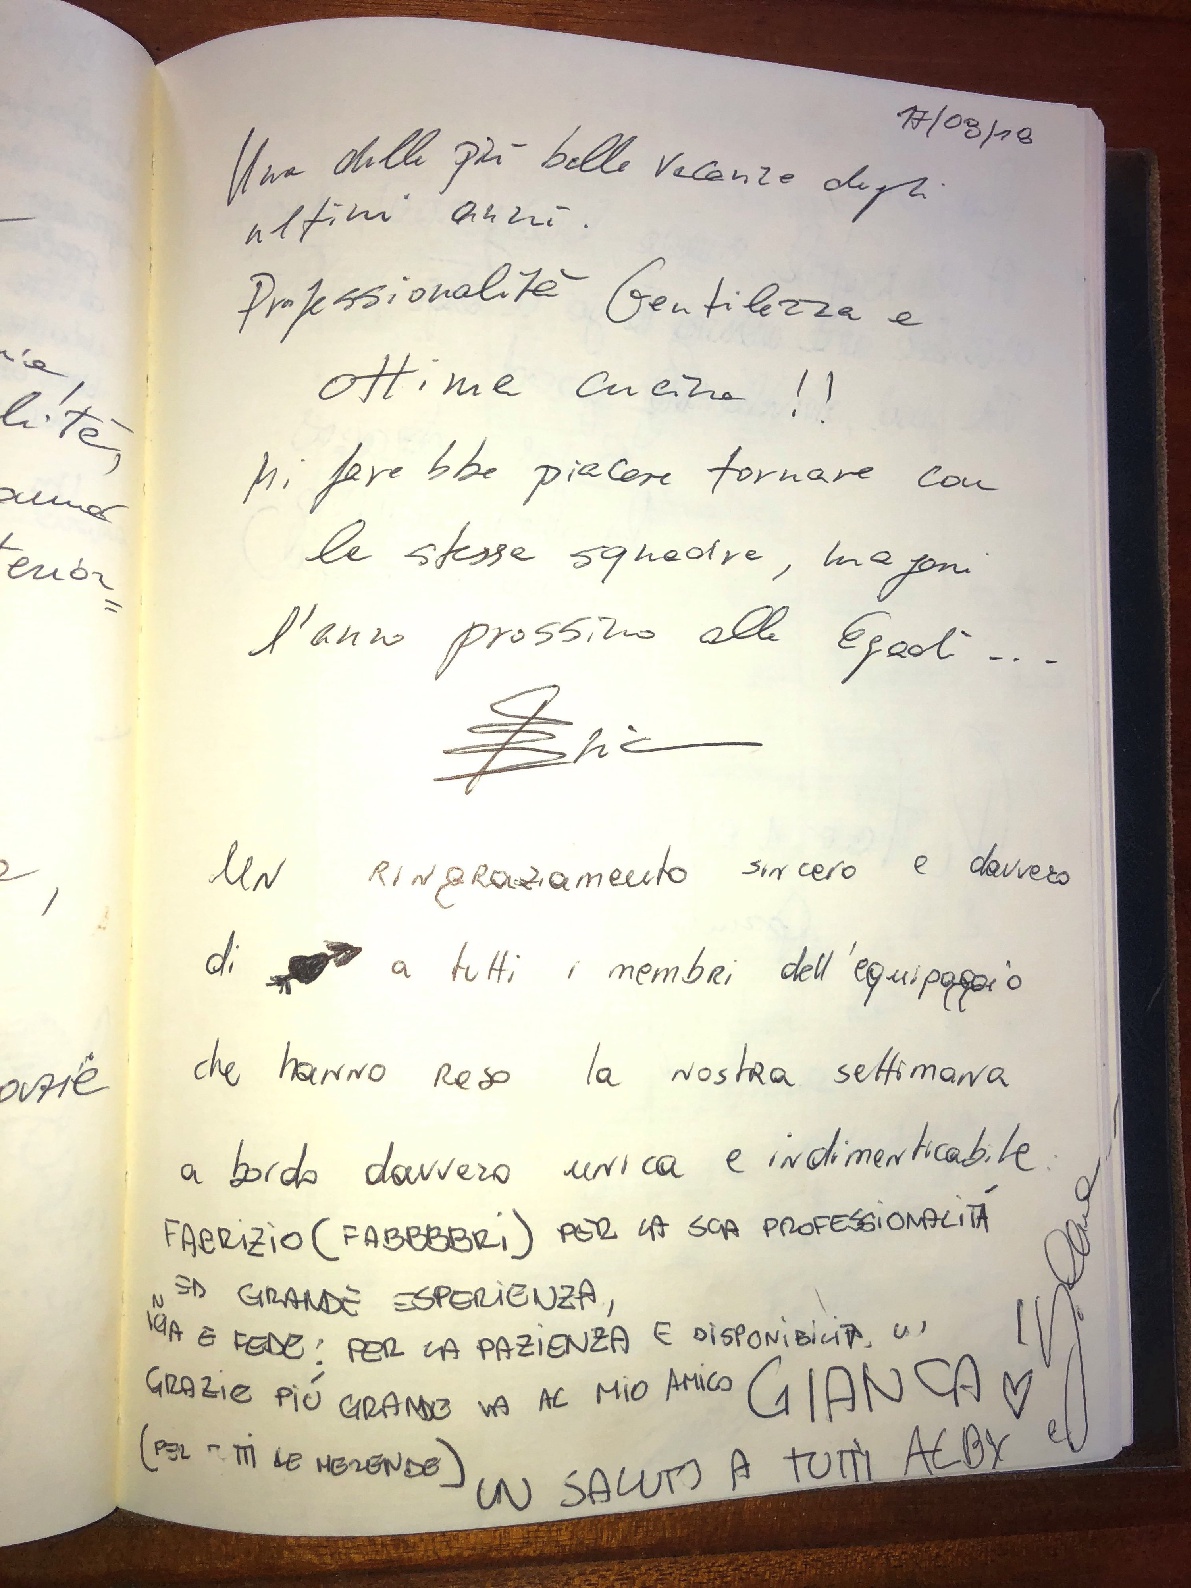 17/08/18
Una delle più belle vacanze degli
ultimi anni.
Professionalità Gentilezza e
ottima cucina !!
Mi farebbe piacere tornare con
la stessa squadra, magari
l'anno prossimo alle Egadi ...
Eric
UN RINGRAZIAMENTO sincero e davvero
di a tutti i membri dell'equipaggio
che hanno reso la nostra settimana
a bordo davvero unica e indimenticabile.
FABRIZIO (FABBBBRI) PER LA SUA PROFESSIONALITÁ
ED GRANDE ESPERIENZA,
E FEDE: PER LA PAZIENZA E DISPONIBILITA. UN
GRAZIE PIÚ GRANDE VA AL MIO AMICO GIANCA ♡
(PER LE MERENDE)
UN SALUTO A TUTTI ALBY
e
lità,
terior=